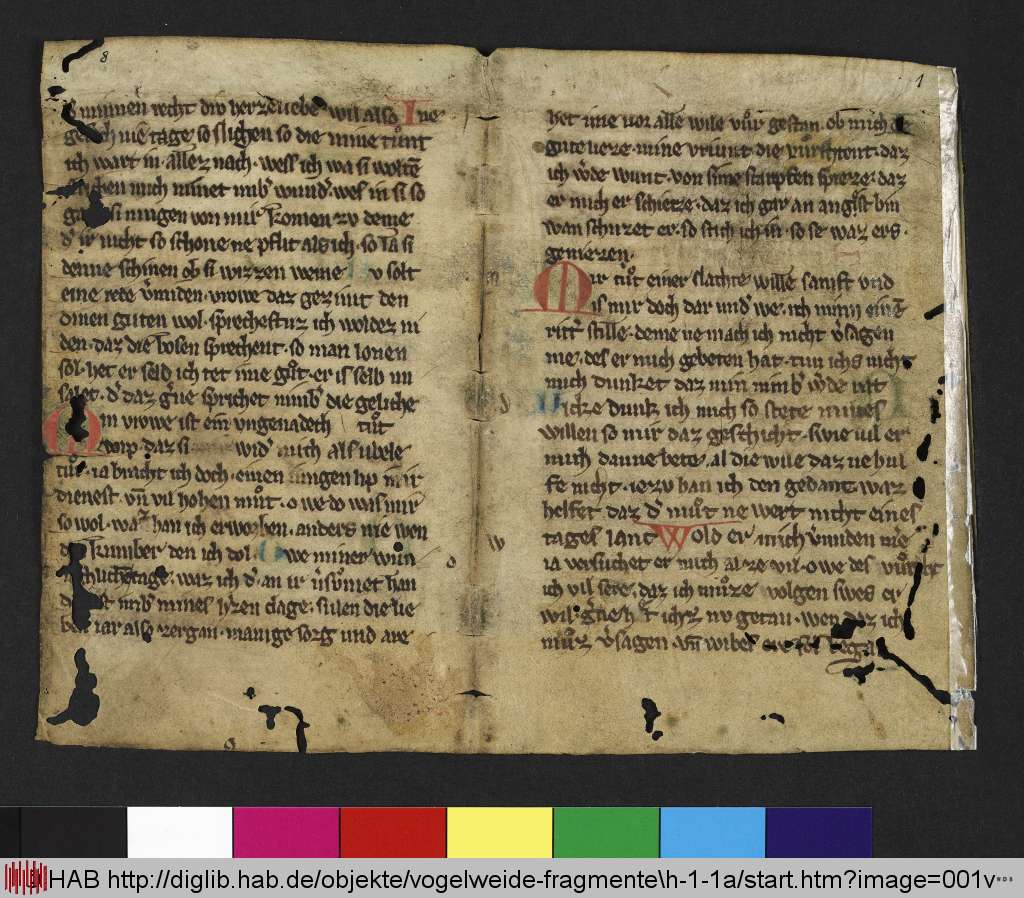 8
minnen recht div herzeliebe wil also Ine
gelich nie tage so slichen so die mine tuͦnt
ich wart in allez nach · west ich wa si wolten
mich minet mīb wund' wes in si so
si mugen von mir komen zv deme
d' ir nicht so schone ne pflit als ich · so la si
denne schinen ob si wizzen weme v solt
eine rede v'miden · vrowe daz gezimt den
dinen guten wol · sprechestuz ich woldez ni
den · daz die bosen sprechent · so man lonen
sol · het er seld ich tet ime guͦt · er is selb un
salet · d' daz g'ne sprichet nimb' die geliche
in vrowe ist ein vngenadech tuͦt
wip daz si wid' mich als ubele
tuͦt · ia bracht ich doch · einen iungen lip in ir
dienest · vn̄ vil hohen muͦt · o we do was mir
so wol · waz han ich erworben · anders nie wen
kumber den ich dol · O we miner wun
tage · waz ich d' an ir v'svmet han
mīb' mines h'zen clage · sulen die lie
iar also zergan · manige sorg und are
1
het ime vor alle wile vuͦr gestan · ob mich
gutevere · mine vriunt die daz
ich w'de wunt · von sime scarpfen spieze · daz
er mich er schieze · daz ich gar an angist bin
wan schuzet er · so stich ich in · so se waz ers ·
geniezen ·
Mir tuͦt einer slachte wille sanft und
is mir doch dar und' we · ich minn einē
ritt' stille · deme ne mach ich nicht v'sagen
me · des er mich gebeten hat · tun ichs nicht
mich dunket daz min nimb' w'de rat
Dicke dunk ich mich so stete mines
willen so mir daz geschicht · swie vil er
mich danne bete · al die wile daz ne hul
fe nicht · iezv han ich den gedanc waz
helfet daz d' muͦt ne wert nicht eines
tages lanc Wold er mich v'miden me
ia versuchet er mich al ze vil · o we des
ich vil sere · daz ich muͦze volgen swes er
wil · g'ne het ichz nv getan · wen daz ich
muͦz v'sagen · vn̄ wibes
HAB http://diglib.hab.de/objekte/vogelweide-fragmente\h-1-1a/start.htm?image=001v